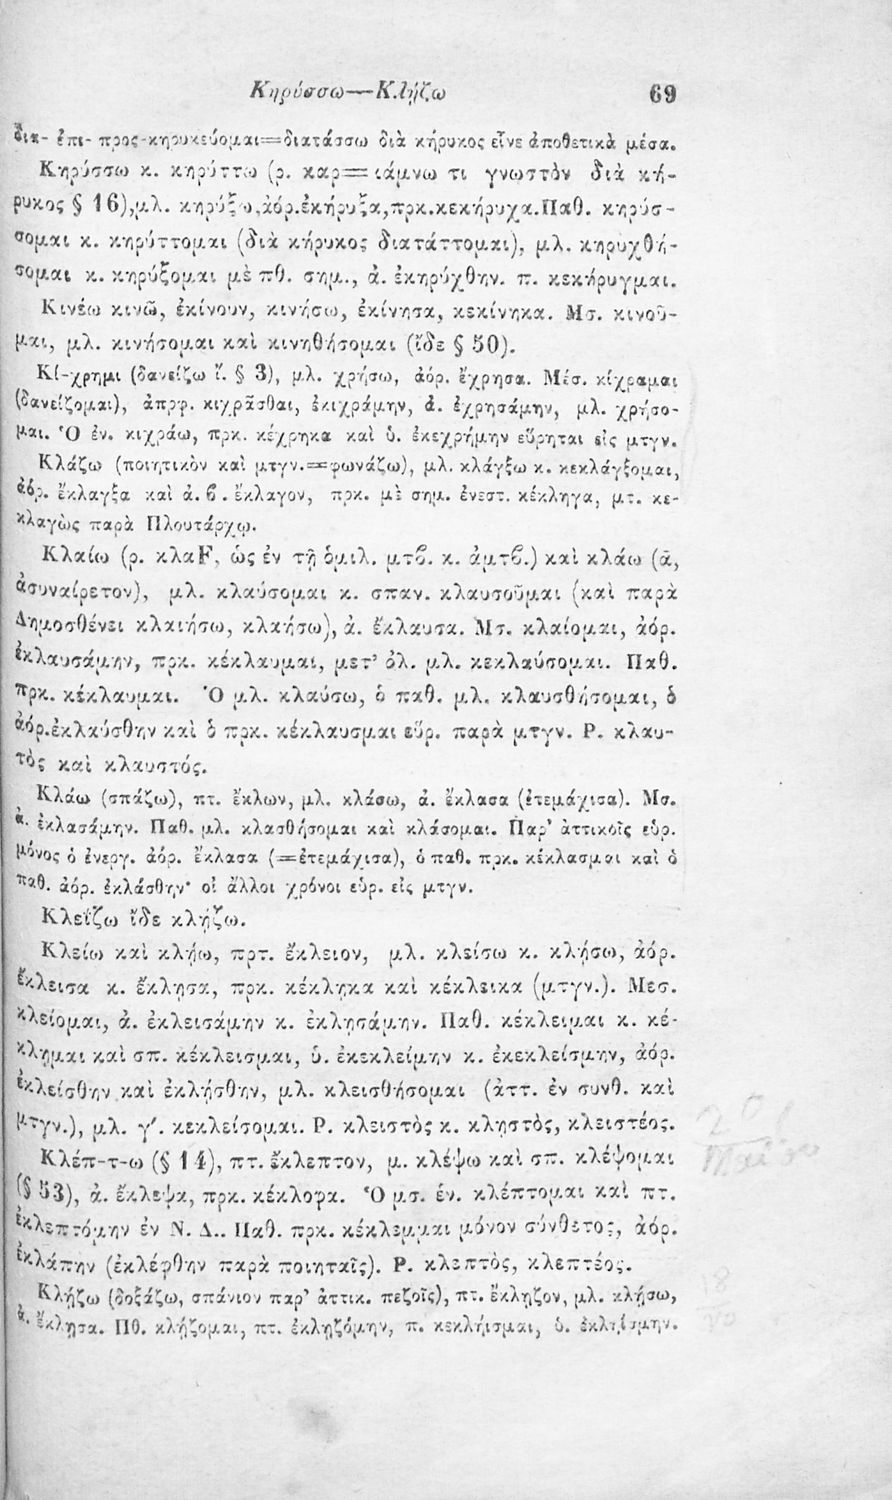 Κηρύσσω—Κλῄζω 69
δια- ἐπι- προς-κηρυκεύομαι=διατάσσω διὰ κήρυκος εἶνε ἀποθετικὰ μέσα.
Κηρύσσω κ. κηρύττω (ρ. καρ=κάμνω τι γνωστὸν διὰ κή-
ρυκος § 16),μλ. κηρύξω,ἀόρ.ἐκήρυξα,πρκ.κεκήρυχα.Παθ. κηρύσ-
σομαι κ. κηρύττομαι (διὰ κήρυκος διατάττομαι), μλ. κηρυχθή-
σομαι κ. κηρύξομαι μὲ πθ. σημ., ἀ. ἐκηρύχθην. π. κεκήρυγμαι.
Κινέω κινῶ, ἐκίνουν, κινήσω, ἐκίνησα, κεκίνηκα. Μσ. κινοῦ-
μαι, μλ. κινήσομαι καὶ κινηθήσομαι (ἴδε § 50).
Κί-χρημι (δανείζω ἴ. § 3), μλ. χρήσω, ἀόρ. ἔχρησα. Μέσ. κίχραμαι
(δανείζομαι), ἀπρφ. κιχρᾶσθαι, ἐκιχράμην, ἀ. ἐχρησάμην, μλ. χρήσο-
μαι. Ὁ ἐν. κιχράω, πρκ. κέχρηκα καὶ ὑ. ἐκεχρήμην εὕρηται εἰς μτγν.
Κλάζω (ποιητικὸν καὶ μτγν.=φωνάζω), μλ. κλάγξω κ. κεκλάγξομαι,
ἀόρ. ἔκλαγξα καὶ ἀ. ϐ. ἔκλαγον, πρκ. μὲ σημ. ἐνεστ. κέκληγα, μτ. κε-
κλαγὼς παρὰ Πλουτάρχῳ.
Κλαίω (ρ. κλαF, ὡς ἐν τῇ ὁμιλ. μτϐ. κ. ἀμτϐ.) καὶ κλάω (ᾱ,
ἀσυναίρετον), μλ. κλαύσομαι κ. σπαν. κλαυσοῦμαι (καὶ παρὰ
Δημοσθένει κλαιήσω, κλαήσω), ἀ. ἔκλαυσα. Μσ. κλαίομαι, ἀόρ.
ἐκλαυσάμην, πρκ. κέκλαυμαι, μετ’ ὀλ. μλ. κεκλαύσομαι. Παθ.
πρκ. κέκλαυμαι. Ὁ μλ. κλαύσω, ὁ παθ. μλ. κλαυσθήσομαι, ὁ
ἀόρ.ἐκλαύσθην καὶ ὁ πρκ. κέκλαυσμαι εὕρ. παρὰ μτγν. Ρ. κλαυ-
τὸς καὶ κλαυστός.
Κλάω (σπάζω), πτ. ἔκλων, μλ. κλάσω, ἀ. ἔκλασα (ἐτεμάχισα). Μσ.
ἀ. ἐκλασάμην. Παθ. μλ. κλασθήσομαι καὶ κλάσομαι. Παρ’ ἀττικοῖς εὑρ.
μόνος ὁ ἐνεργ. ἀόρ. ἔκλασα (=ἐτεμάχισα), ὁ παθ. πρκ. κέκλασμαι καὶ ὁ
παθ. ἀόρ. ἐκλάσθην· οἱ ἄλλοι χρόνοι εὑρ. εἰς μτγν.
Κλεΐζω ἴδε κλῄζω.
Κλείω καὶ κλῄω, πρτ. ἔκλειον, μλ. κλείσω κ. κλῄσω, ἀόρ.
ἔκλεισα κ. ἔκλῃσα, πρκ. κέκλῃκα καὶ κέκλεικα (μτγν.). Μεσ.
κλείομαι, ἀ. ἐκλεισάμην κ. ἐκλῃσάμην. Παθ. κέκλειμαι κ. κέ-
κλημαι καὶ σπ. κέκλεισμαι, ὑ. ἐκεκλείμην κ. ἐκεκλείσμην, ἀόρ.
ἐκλείσθην καὶ ἐκλήσθην, μλ. κλεισθήσομαι (ἀττ. ἐν συνθ. καὶ
μτγν.), μλ. γ΄. κεκλείσομαι. Ρ. κλειστὸς κ. κλῃστὸς, κλειστέος.
Κλέπ-τ-ω (§ 14), πτ. ἔκλεπτον, μ. κλέψω καὶ σπ. κλέψομαι
(§ 53), ἀ. ἔκλεψα, πρκ. κέκλοφα. Ὁ μσ. ἐν. κλέπτομαι καὶ πτ.
ἐκλεπτόμην ἐν Ν. Δ.. Παθ. πρκ. κέκλεμμαι μόνον σύνθετος, ἀόρ.
ἐκλάπην (ἐκλέφθην παρὰ ποιηταῖς). Ρ. κλεπτὸς, κλεπτέος.
Κλῄζω (δοξάζω, σπάνιον παρ’ ἀττικ. πεζοῖς), πτ. ἔκλῃζον, μλ. κλῄσω,
ἀ. ἔκλῃσα. Πθ. κλῄζομαι, πτ. ἐκλῃζόμην, π. κεκλήισμαι, ὑ. ἐκλῄσμην.
20
Μαΐου
18